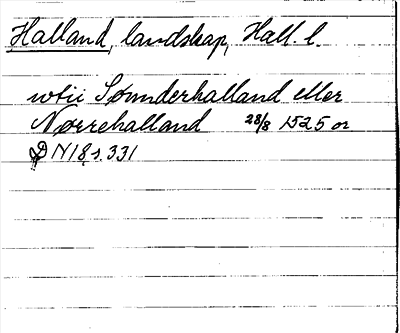 Halland, landskap, Hall l.
wtii Sønnderhalland eller
Nørrehalland 28/8 1525 or
DN 18 s. 331